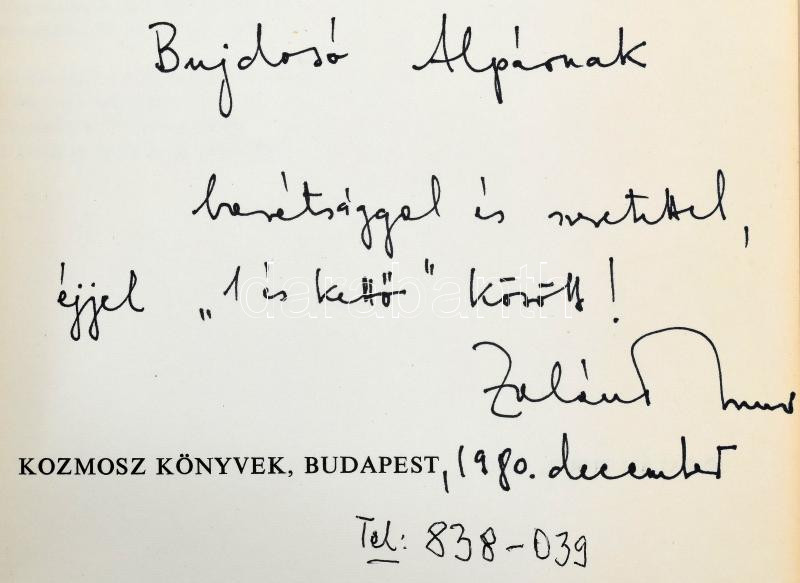 Bujdosó Alpárnak
barátsággal és szeretettel,
éjjel „1 és kettő" között!
Zalán Tibor
KOZMOSZ KÖNYVEK, BUDAPEST, 1980. december
Tel: 838-039